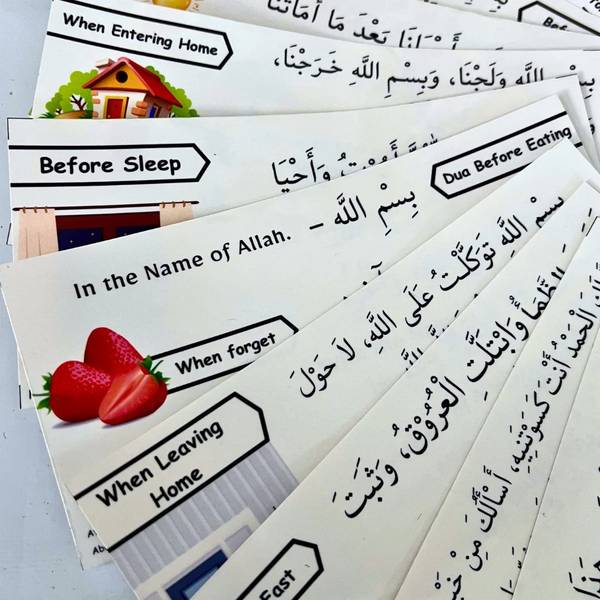 بَعْدَ مَا أَمَاتَنَا
When Entering Home
اللَّهِ وَلَجْنَا، وَبِسْمِ اللَّهِ خَرَجْنَا،
Before Sleep
وَأَحْيَا
Dua Before Eating
In the Name of Allah. – بِسْمِ اللَّه
When forget
When Leaving
Home
بِسْمِ اللَّهِ تَوَكَّلْتُ عَلَى اللَّهِ، لاَ حَوْلَ
Fast
الظَّمَأُ وَابْتَلَّتِ الْعُرُوْقُ، وَثَبَتَ
الْحَمْدُ أَنْتَ كَسَوْتَنِيهِ، أَسْأَلُكَ مِنْ